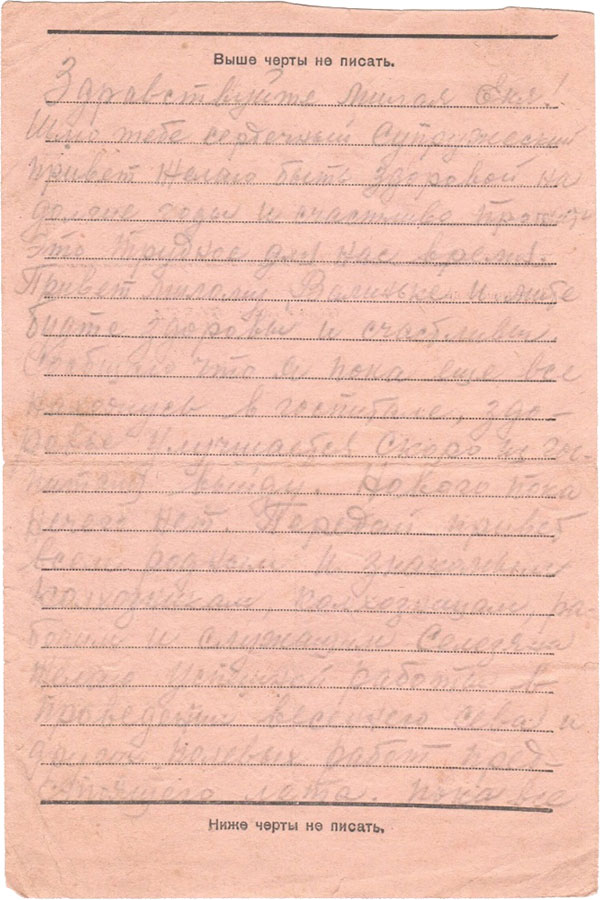 Выше черты не писать.
Здравствуйте милая Еня!
Шлю тебе сердечный супружеский
привет желаю быть здоровой на
долгие годы и счастливо
это трудное для нас время.
Привет милому Валиньке и
будте здоровы и счастливы
Сообщаю что я пока еще все
нахожусь в госпитале, здо-
ровье улучшается скоро из гос-
питаля выйду. Нового пока
ничего нет. Передай привет
всем родным и знакомым
колхозникам колхозницам ра-
бочим и служащим
желаю успешной работы в
проведении весеннего сева и
других полевых работ пред-
стоящего лета. пока все
Ниже черты не писать.